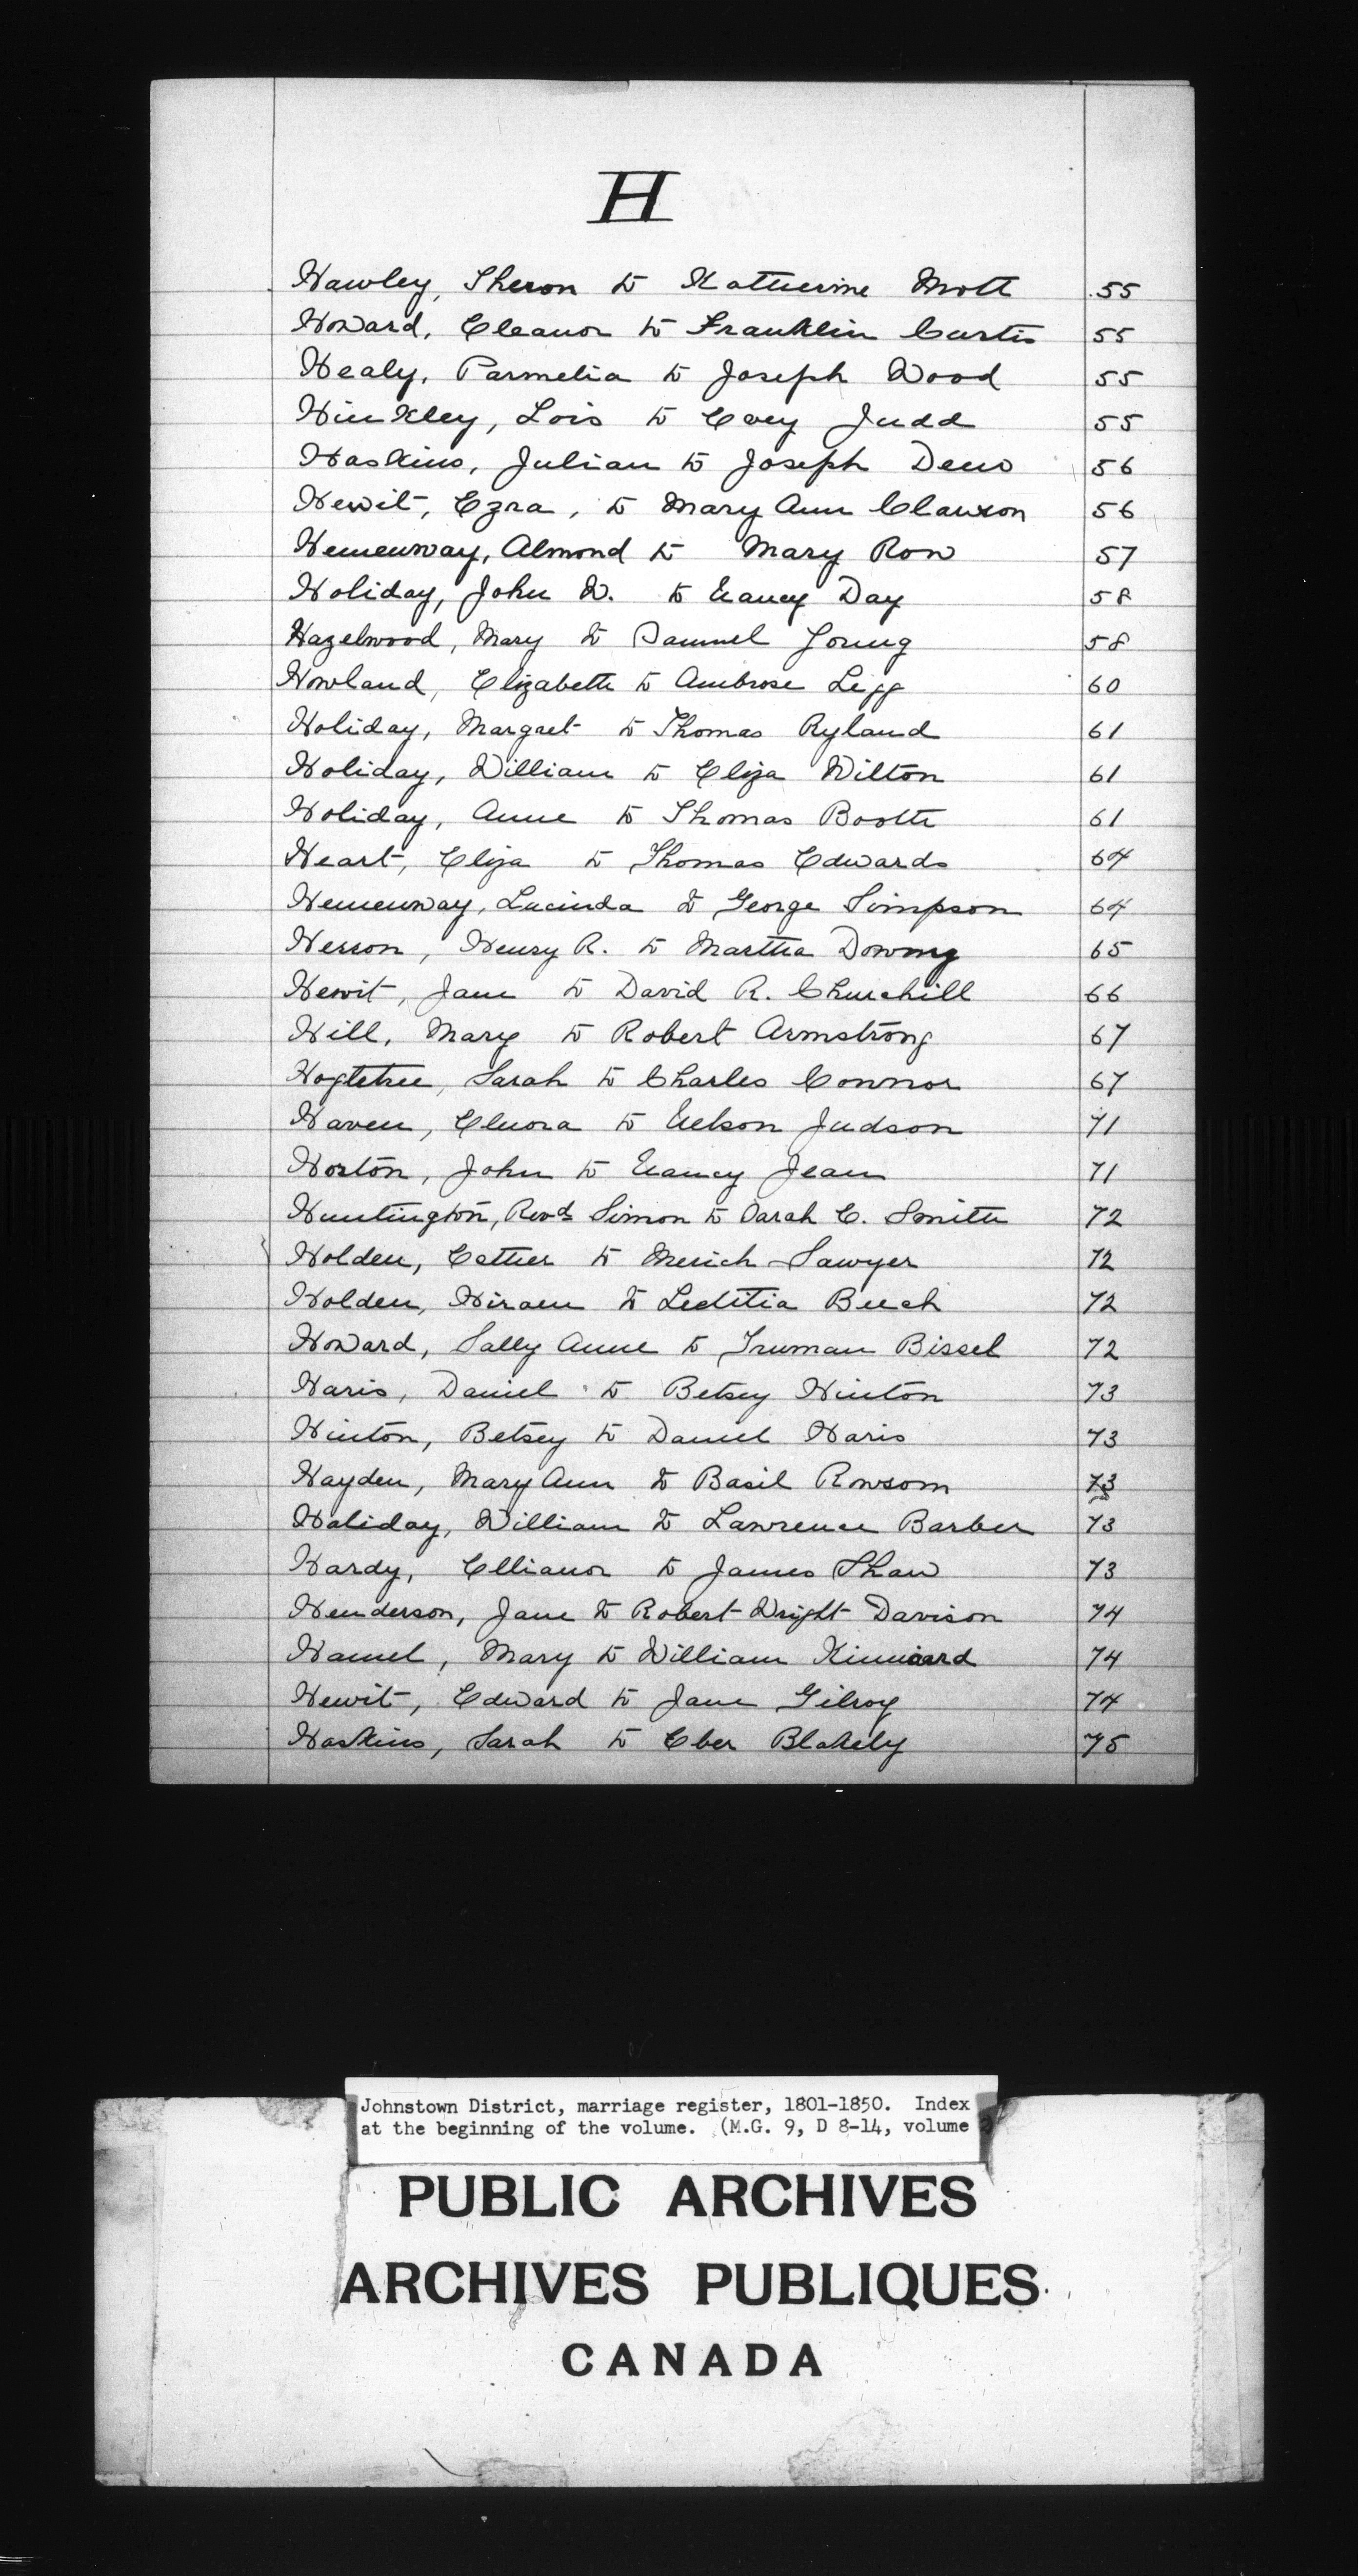 H
Hawley, Theron to Katherine Mott 55
Howard, Eleanor to Franklin Curtis 55
Healy, Parmelia to Joseph Wood 55
Hinkley, Lois to Judd 55
Haskins, Julian to Joseph 56
Hewit, Ezra, to Mary Ann Clawson 56
Hemenway, Almond to Mary Row 57
Holiday, John W. to Nancy Day 58
Hazelwood, Mary to Samuel Young 58
Howland, Elizabeth to Ambrose Legg 60
Holiday, Margaret to Thomas Ryland 61
Holiday, William to Eliza Wilton 61
Holiday, Anne to Thomas Booth 61
Heart, Eliza to Thomas Edwards 64
Hemenway, Lucinda to George Simpson 64
Herron, Henry R. to Martha Downy 65
Hewit, Jane to David R. Churchill 66
Hill, Mary to Robert Armstrong 67
Hogtetree, Sarah to Charles Connor 67
Haven, Elnora to Nelson Judson 71
Horton, John to Nancy Jean 71
Huntington, Revd Simon to Sarah E. Smith 72
Holden, Esther to Merich Sawyer 72
Holden, Hiram to Leditia Beech 72
Howard, Sally Anne to Truman Bissel 72
Haris, Daniel to Betsey Hinton 73
Hinton, Betsey to Daniel Haris 73
Hayden, Mary Ann to Basil Rowsom 73
Haliday, William to Lawrence Barber 73
Hardy, Ellianor to James Shaw 73
Henderson, Jane to Robert Wright Davison 74
Hamel, Mary to William Kinniard 74
Hewit, Edward to Jane Gilroy 74
Haskins, Sarah to Eber Blakely 75
Johnstown District, marriage register, 1801-1850. Index
at the beginning of the volume. (M.G. 9, D 8-14, volume
PUBLIC ARCHIVES
ARCHIVES PUBLIQUES
CANADA